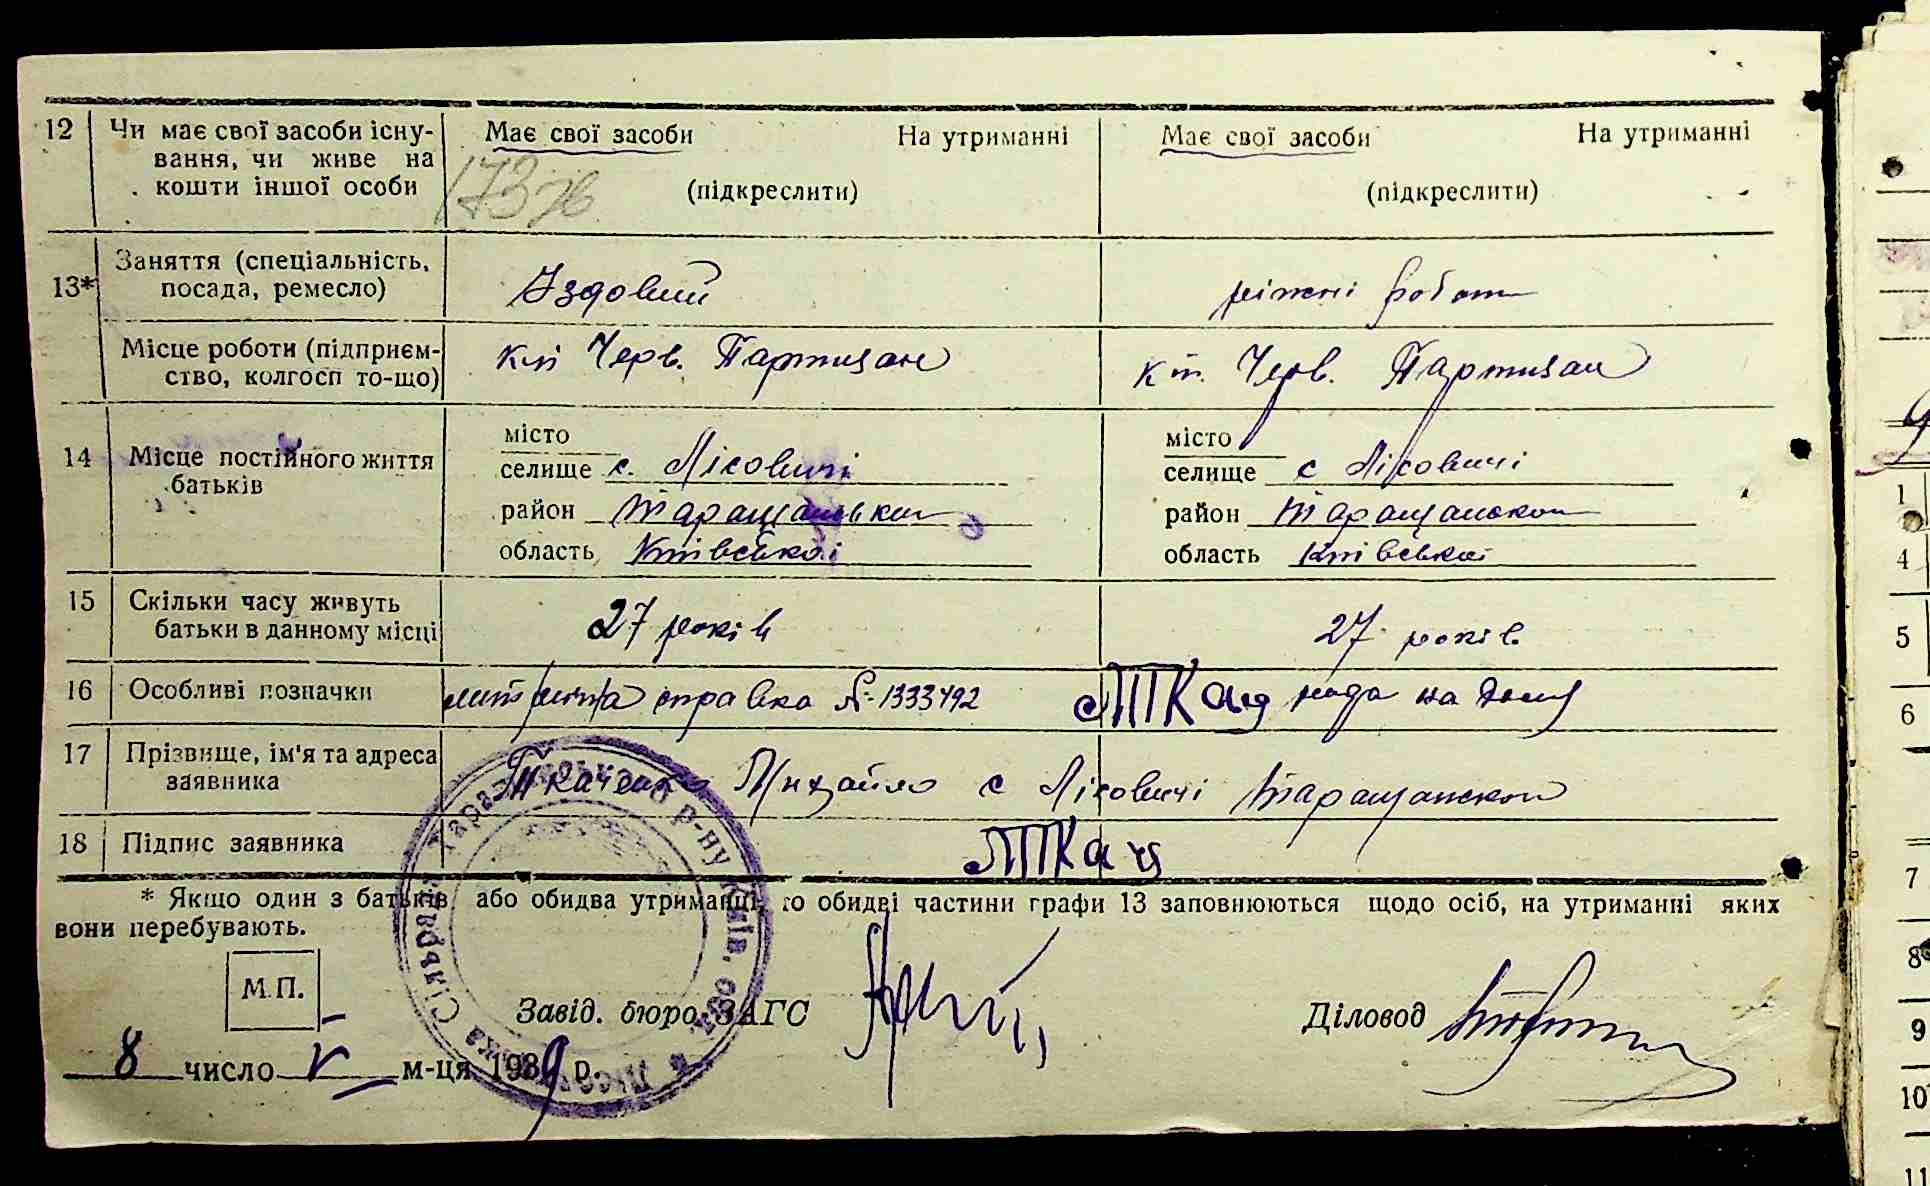 12 Чи має свої засоби існу- Має свої засоби На утриманні Має свої засоби На утриманні
вання, чи живе на
кошти іншої особи (підкреслити) (підкреслити)
Заняття (спеціальність, Їздовий ріжні роботи
13* посада, ремесло)
Місце роботи (підприєм- кп Черв. Партизан кп. Черв. Партизан
ство, колгосп то-що)
місто місто
14 Місце постійного життя селище с. Лісовичі селище с Лісовичі
батьків район Таращанського район Таращанского
область Київської область Київської
15 Скільки часу живуть 27 років 27 років
батьки в данному місці
16 Особливі позначки справка № 1333492
17 Прізвище, ім'я та адреса Ткаченко Михайло с Лісовичі Таращанского
заявника
18 Підпис заявника Ткач
* Якщо один з батьків або обидва утриманці, то обидві частини графи 13 заповнюються щодо осіб, на утриманні яких
вони перебувають.
М.П.
Завід. бюро ЗАГС Діловод
8 число V м-ця 1939 р.
1
4
5
6
7
8
9
10
11